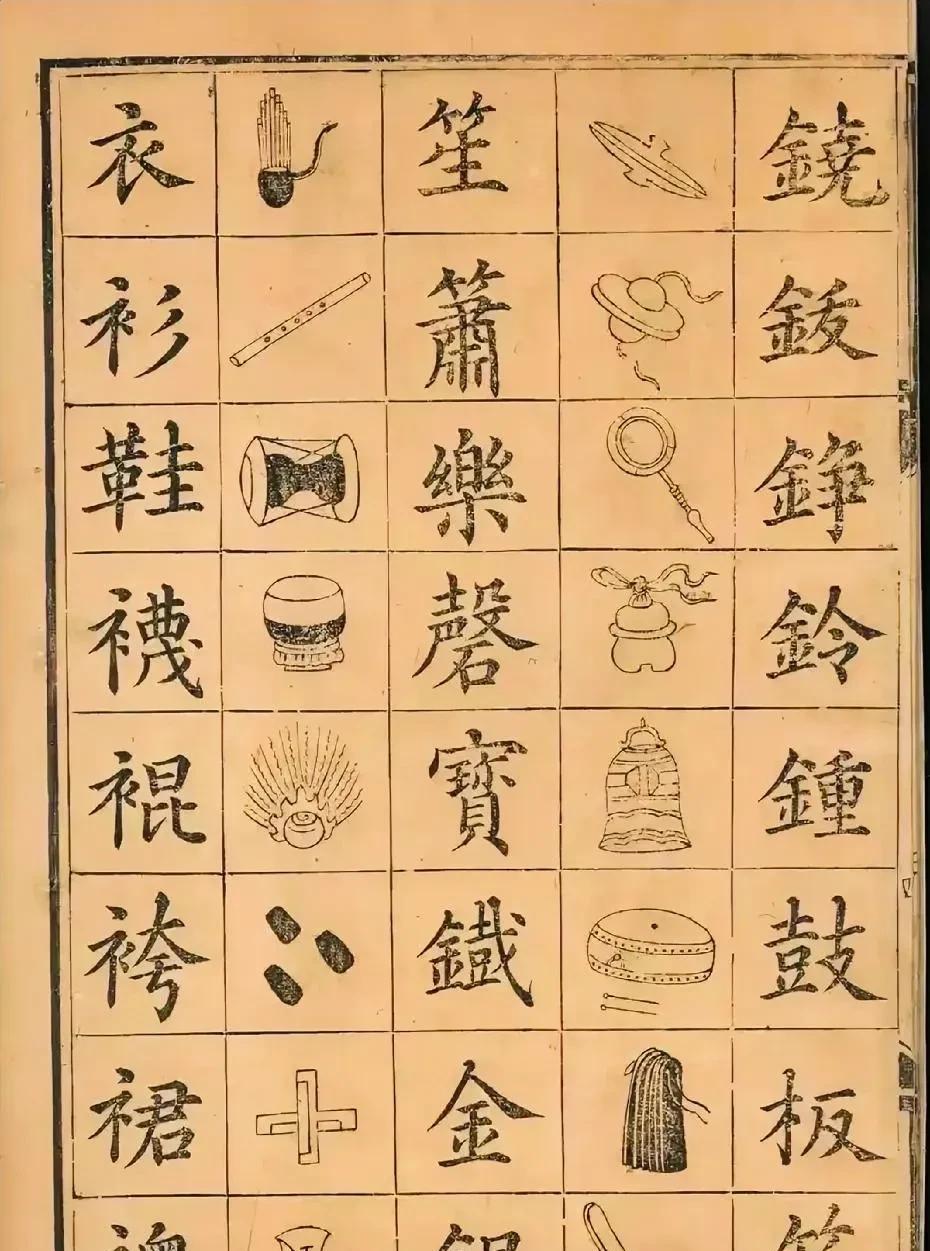 鐃鈸錚鈴鍾鼓板
笙簫樂磬寶鐵金
衣衫鞋襪裩袴裙